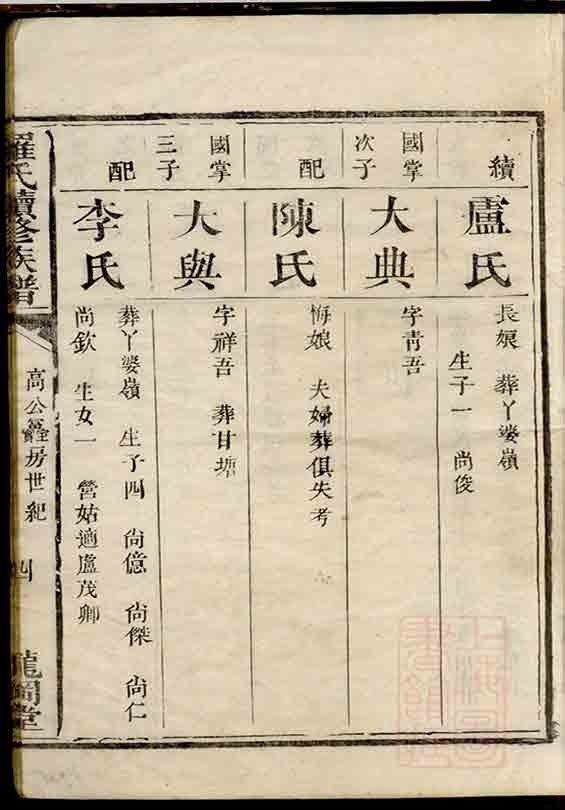 續
盧氏
長娘 葬丫婆嶺
生子一 尚俊
國掌
次子
大典
字青吾
配
陳氏
悔娘 夫婦葬俱失考
國掌
三子
大與
字祥吾 葬甘塘
配
李氏
葬丫婆嶺 生子四 尚億 尚傑 尚仁
尚欽 生女一 營姑適盧茂卿
羅氏續修族譜
高公 房世紀
四
龍岡堂
上海圖
書館藏